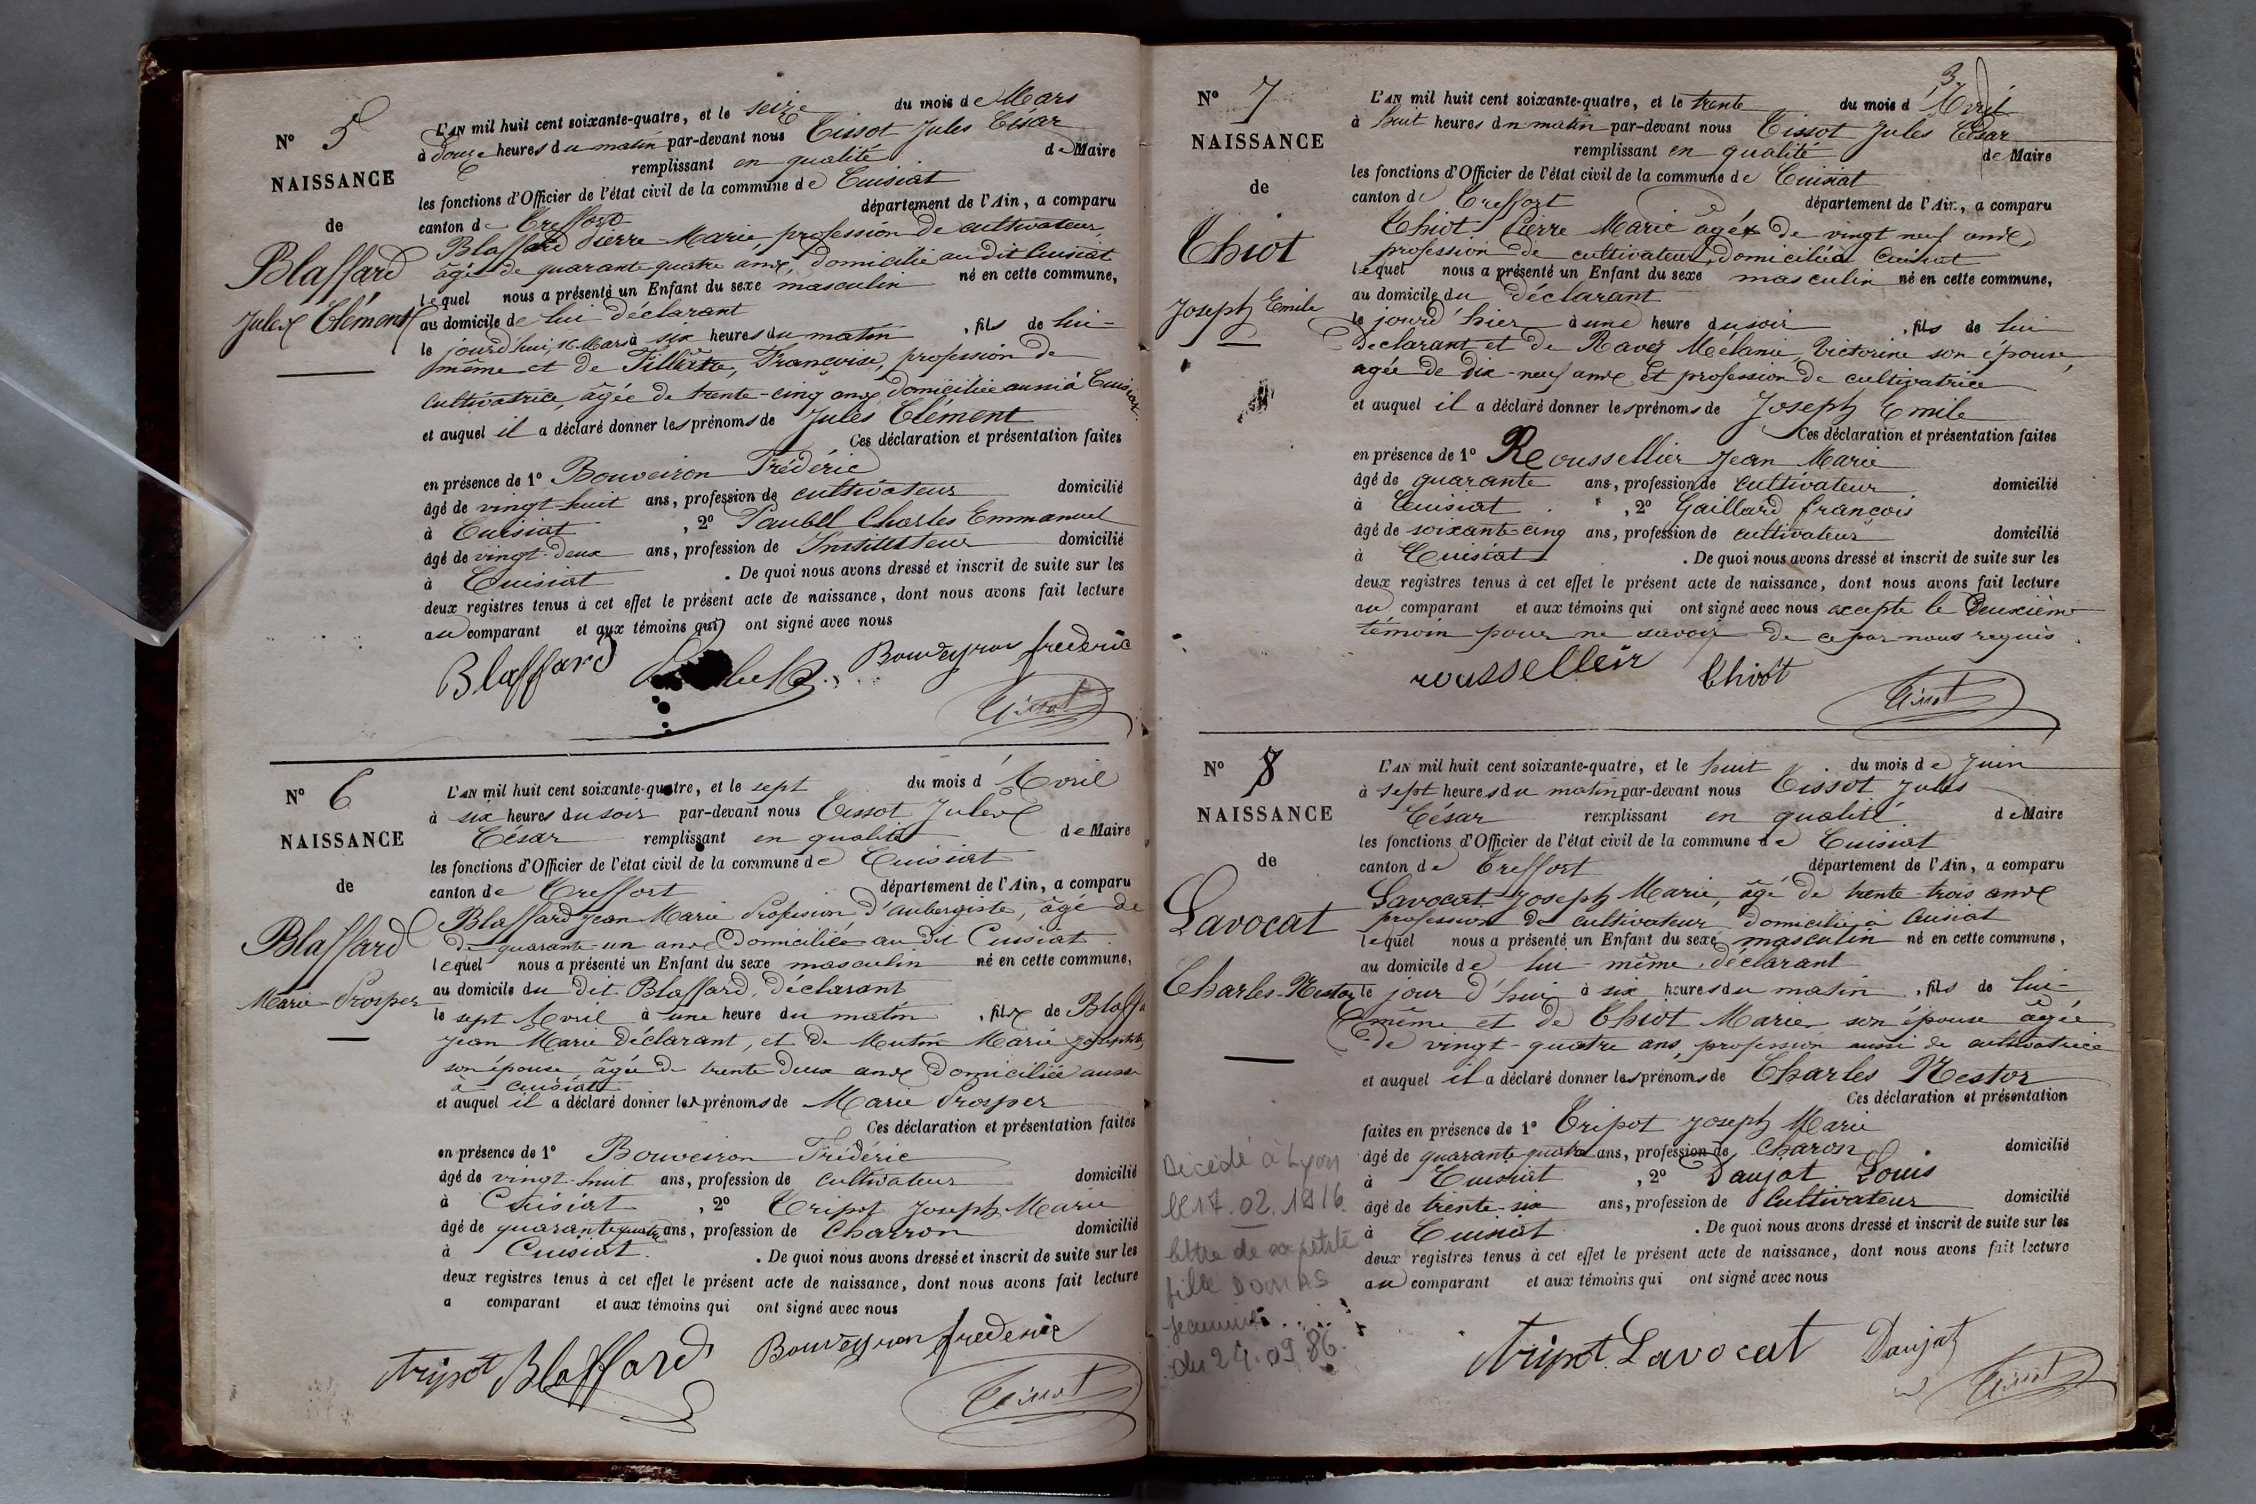 N° 5
NAISSANCE
de
Blaffard
Jules Clément
L'AN mil huit cent soixante-quatre, et le seize du mois de Mars
à douze heures du matin par-devant nous Tissot Jules César
remplissant en qualité de Maire
les fonctions d'Officier de l'état civil de la commune de Cuisiat
canton de Treffort département de l'Ain, a comparu
Blaffard Pierre Marie, profession de cultivateur,
âgé de quarante quatre ans, domicilié au dit Cuisiat
lequel nous a présenté un Enfant du sexe masculin né en cette commune,
au domicile de lui déclarant
le jourd'hui, 16 Mars à six heures du matin, fils de lui-
même et de Fillette, Françoise, profession de
cultivatrice, âgée de trente-cinq ans, domiciliée aussi à Cuisiat.
et auquel il a déclaré donner les prénoms de Jules Clément
Ces déclaration et présentation faites
en présence de 1° Bouveiron Frédéric
âgé de vingt-huit ans, profession de cultivateur domicilié
à Cuisiat, 2° Paubel Charles Emmanuel
âgé de vingt-deux ans, profession de Instituteur domicilié
à Cuisiat. De quoi nous avons dressé et inscrit de suite sur les
deux registres tenus à cet effet le présent acte de naissance, dont nous avons fait lecture
au comparant et aux témoins qui ont signé avec nous
Blaffard Bouveyron frederic
Tissot
N° 6
NAISSANCE
de
Blaffard
Marie-Prosper
L'AN mil huit cent soixante-quatre, et le sept du mois d'Avril
à six heures du soir par-devant nous Tissot Jules
César remplissant en qualité de Maire
les fonctions d'Officier de l'état civil de la commune de Cuisiat
canton de Treffort département de l'Ain, a comparu
Blaffard Jean Marie Profession d'aubergiste, âgé de
de quarante-un ans Domicilié au dit Cuisiat.
lequel nous a présenté un Enfant du sexe masculin né en cette commune,
au domicile du dit Blaffard, déclarant
le sept Avril à une heure du matin, fils de Blaffa
Jean Marie Déclarant, et de Mutin Marie Josephte
son épouse, âgée de trente deux ans Domiciliée aussi
à Cuisiat
et auquel il a déclaré donner les prénoms de Marie Prosper
Ces déclaration et présentation faites
en présence de 1° Bouveiron Frédéric
âgé de vingt-huit ans, profession de cultivateur domicilié
à Cuisiat, 2° Tripot Joseph-Marie
âgé de quarante quatre ans, profession de Charron domicilié
à Cuisiat. De quoi nous avons dressé et inscrit de suite sur les
deux registres tenus à cet effet le présent acte de naissance, dont nous avons fait lecture
a comparant et aux témoins qui ont signé avec nous
tripot Blaffard Bouveyron frederic
Tissot
3
N° 7
NAISSANCE
de
Thiot
Joseph Emile
L'AN mil huit cent soixante-quatre, et le trente du mois d'Avril
à huit heures du matin par-devant nous Tissot Jules César
remplissant en qualité de Maire
les fonctions d'Officier de l'état civil de la commune de Cuisiat
canton de Treffort département de l'Ain, a comparu
Thiot Pierre Marie âgé de vingt neuf ans,
profession de cultivateur, domicilié à Cuisiat
lequel nous a présenté un Enfant du sexe masculin né en cette commune,
au domicile du déclarant
le jourd'hier à une heure du soir, fils de lui
Déclarant et de Ravez Mélanie, Victorine son épouse,
agée de dix-neuf ans et profession de cultivatrice
et auquel il a déclaré donner les prénoms de Joseph Emile
Ces déclaration et présentation faites
en présence de 1° Roussellier Jean Marie
âgé de quarante ans, profession de cultivateur domicilié
à Cuisiat, 2° Gaillard françois
âgé de soixante-cinq ans, profession de cultivateur domicilié
à Cuisiat. De quoi nous avons dressé et inscrit de suite sur les
deux registres tenus à cet effet le présent acte de naissance, dont nous avons fait lecture
au comparant et aux témoins qui ont signé avec nous excepté le Deuxième
témoin pour ne savoir de ce par nous requis.
rousselleir thiot
Tissot
N° 8
NAISSANCE
de
Lavocat
Charles-Nestor
L'AN mil huit cent soixante-quatre, et le huit du mois de Juin
à sept heures du matin par-devant nous Tissot Jules
César remplissant en qualité de Maire
les fonctions d'Officier de l'état civil de la commune de Cuisiat
canton de Treffort département de l'Ain, a comparu
Lavocat Joseph Marie, âgé de trente-trois ans
profession de cultivateur domicilié à Cuisiat
lequel nous a présenté un Enfant du sexe masculin né en cette commune,
au domicile de lui-même, déclarant
le jour d'hui à six heures du matin, fils de lui-
même et de Thiot Marie son épouse âgée
de vingt-quatre ans, profession aussi de cultivatrice
et auquel il a déclaré donner les prénoms de Charles Nestor
Ces déclaration et présentation
faites en présence de 1° Tripot Joseph Marie
âgé de quarante quatre ans, profession de Charon domicilié
à Cuisiat, 2° Daujat Louis
âgé de trente-six ans, profession de Cultivateur domicilié
à Cuisiat. De quoi nous avons dressé et inscrit de suite sur les
deux registres tenus à cet effet le présent acte de naissance, dont nous avons fait lecture
au comparant et aux témoins qui ont signé avec nous
Décédé à Lyon
le 17.02.1916
lettre de sa petite
fille
du 24.09.86.
tripot Lavocat Daujat
Tissot